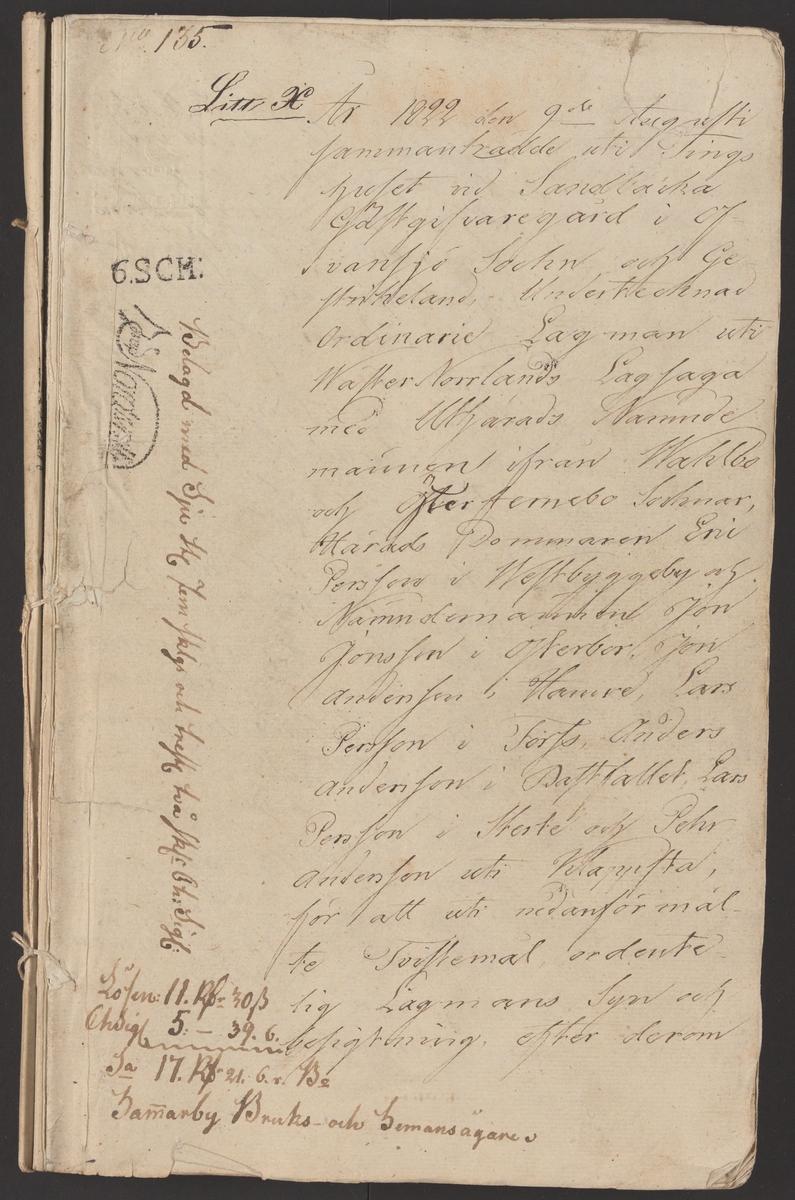 No. 135.
Litt X
År 1822 den 9de Augusti
sammanträdde uti Tings
huset vid Sandbacka
Gästgifvaregård i Of-
vansjö Sochn och Ge-
strikeland, Undertecknad
Ordinarie Lagman uti
WästerNorrlands Lagsaga
med Urtjärads Nämnde
männen ifrån Wahlbo
och ÖsterFernebo Sochnar,
Härads Dommaren Eric
Persson i Westbyggeby och
Nämndemännen Jon
Jönsson i Österbor, Jon
Andersson i Hamre, Lars
Persson i Forss, Anders
Andersson i Bastfallet, Lars
Persson i Sterte och Pehr
Andersson uti Klappsta,
för att uti nedanförmäl-
te Tvistemål ordente-
lig Lagmans Syn och
besigtning, efter derom
6.SCH:
Belagd med Sju
och två Ch: Sigl:
Lösen: 11. Rdr 30 ß
Ch:Sigl 5. — 39. 6.
Sa 17. Rdr 21. 6. r. Bo
Hammarby Bruks- och Hemansägare